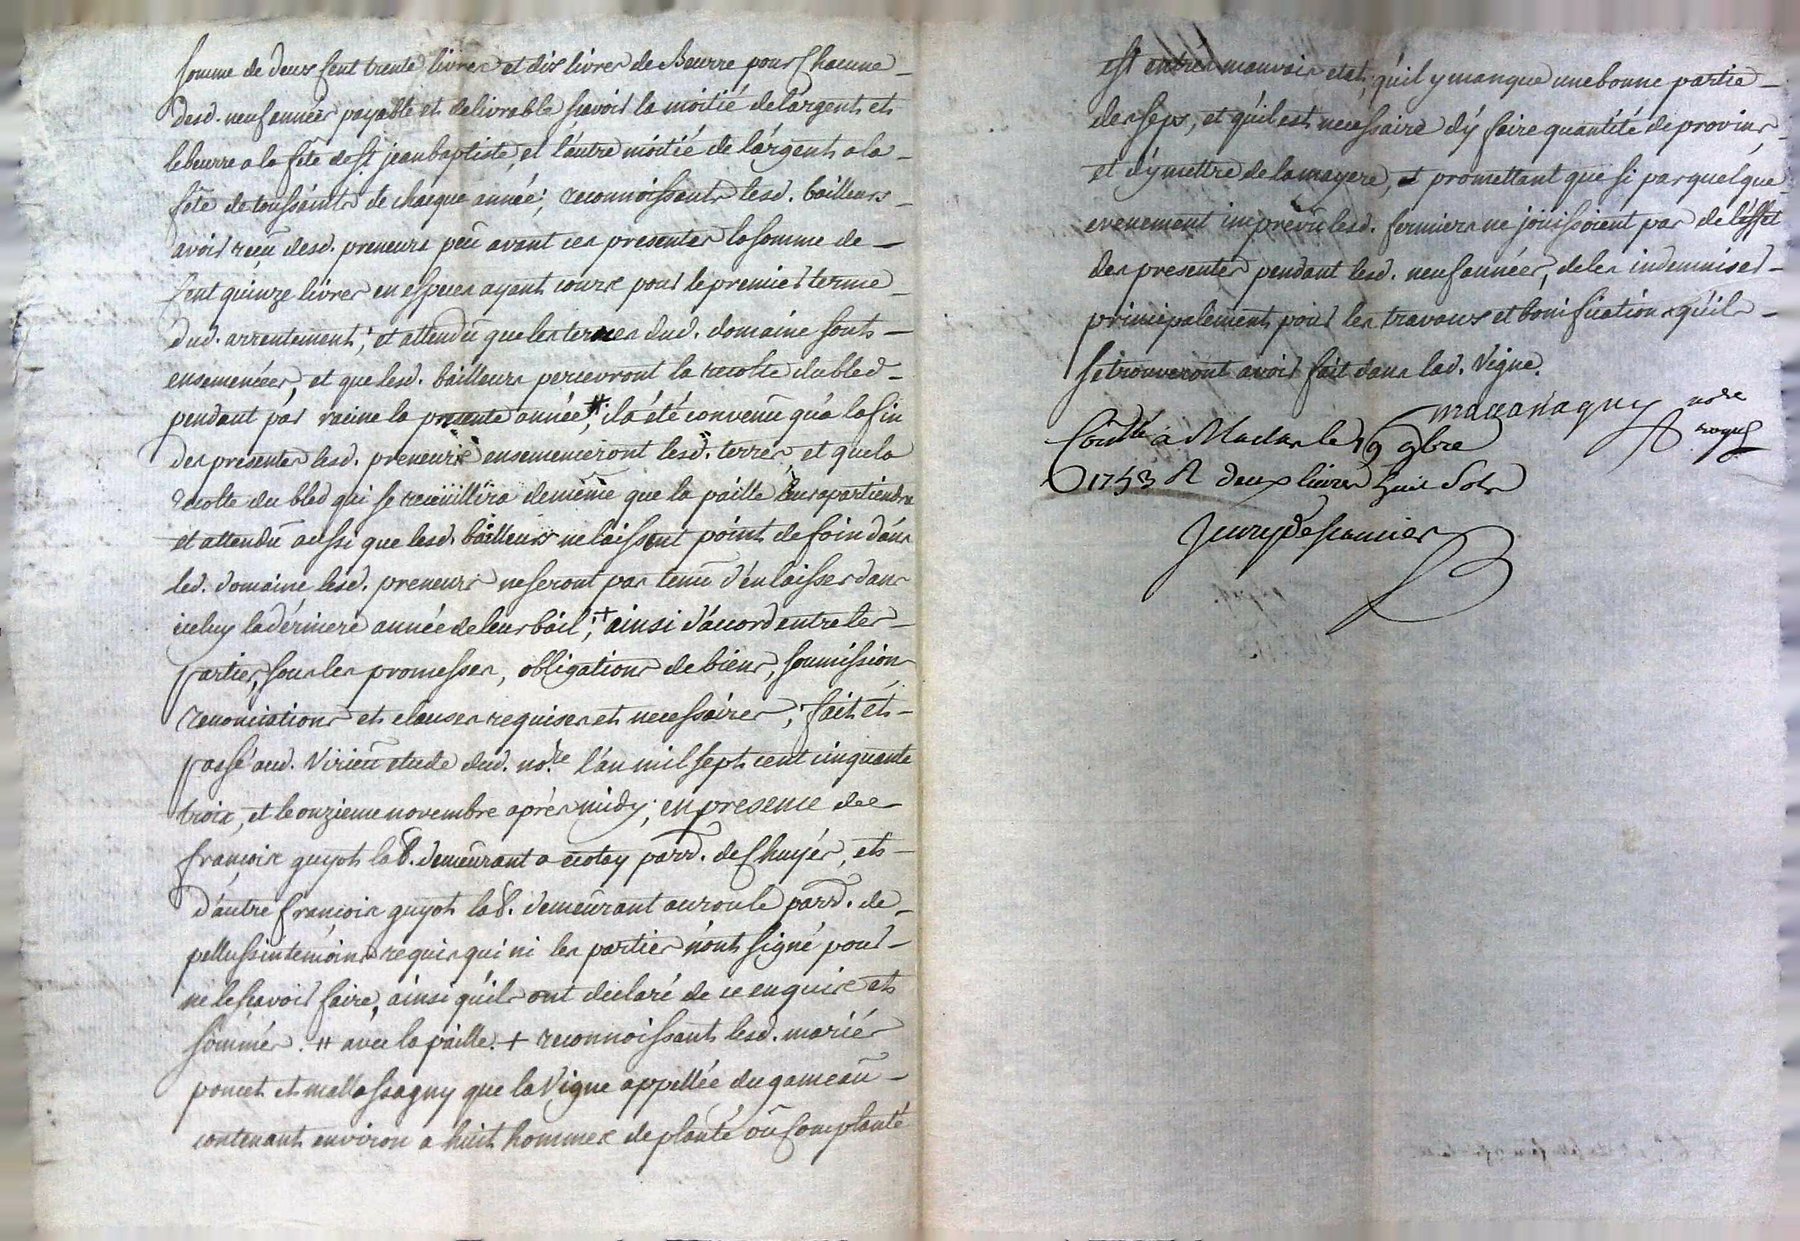 somme de deux cent trente livres et dix livres de Beurre pour Chacune
desd. neuf années payable et delivrable scavoir la moitié de l'argent et
le beurre a la fête de st jean baptiste, et l'autre moitié de l'argent a la
fête de toussaints de chaque année; reconnoissants lesd. bailleurs
avoir reçu desd. preneurs peû avant ces presentes la somme de
cent quinze livres en especes ayant cours pour le premier terme
dud. arrentement; et attendu que les terres dud. domaine sont
ensemencées, et que lesd. bailleurs percevront la recolte du bled
pendant par racine la presente année, # il a été convenû qu'a la fin
des presentes lesd. preneurs ensemenceront lesd. terres et que la
recolte du bled qui se recuillira de même que la paille leur apartiendra
et attendû aussi que lesd. bailleurs ne laissent point de foin dans
led. domaine lesd. preneurs ne seront pas tenû d'en laisser dans
iceluy la derniere année de leur bail; + ainsi d'accord entre les
parties, sous les promesses, obligations de biens, soumission,
renonciations et clauses requises et necessaires; fait et
passé aud. Virieû etude dud. no.re l'an mil sept cent cinquante
trois, et le onzieme novembre après midy; en presence de
françois guyot la8. demeurant a ecotay parr. de Chuyer, et
d'autre françois guyot la8. demeurant au roule parr. de
pellussin temoins requis qui ni les parties n'ont signé pour
ne le scavoir faire, ainsi qu'ils ont declaré de ce enquis et
sommés. # avec la paille. + reconnoissants lesd. mariés
poncet et mallassagny que la Vigne appellée du gameau
contenant environ a huit hommes de planté oû Complanté
est en très mauvais etat, qu'il y manque une bonne partie
des seps, et qu'il est necessaire d'y faire quantité de provins,
et d'y mettre de la mayere, et promettant que si par quelque
evenement imprevû lesd. fermiers ne joüissoient pas de l'effet
des presentes pendant lesd. neuf années, de les indemniser
principalement pour les travaux et bonification qu'ils
se trouveront avoir fait dans lad. Vigne.
nore
royal
Conllé a Maclas le 19 9bre
1753 R deux livres huit sols